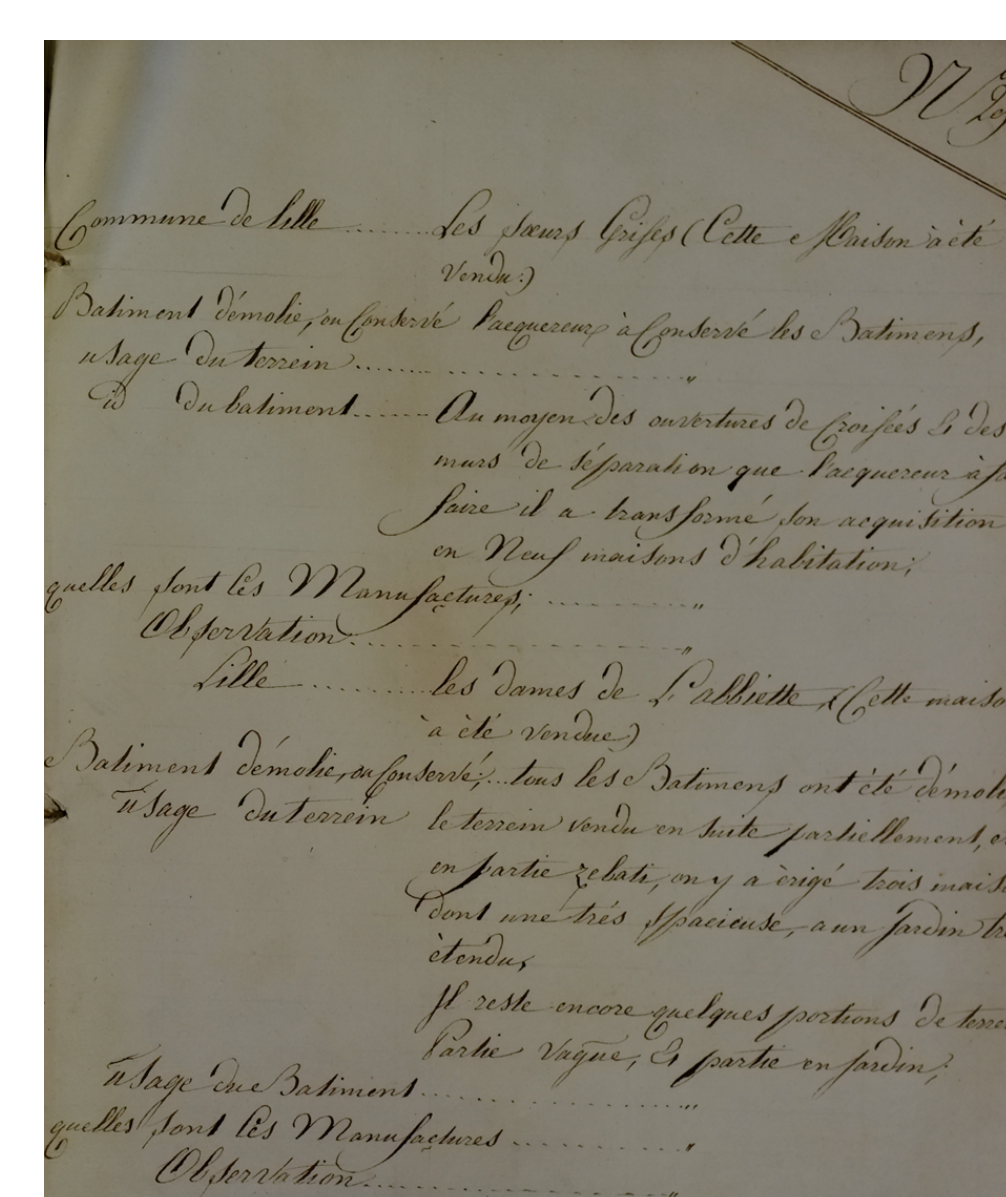 N
Commune de lille ........ Les sœurs Grises (Cette Maison à été
Vendu.)
Batiment démolie, ou Conservé l'acquereur à Conservé les Batimens,
usage du terrein ........ "
id du batiment ........ Au moyen des ouvertures de Croisées & des
murs de séparation que l'acquereur à
faire il a transformé son acquisition
en Neuf maisons d'habitation;
quelles sont Les Manufactures; ........ "
Observation ........ "
Lille ........ les dames de L'abbiette, (Cette maiso
à été vendue)
Batiment démolie, ou Conservé; ... tous les Batimens ont été démoli
Usage du terrein le terrein vendu en suite partiellement, e
en partie rebati, on y a èrigé trois mais
dont une trés spacieuse, a un jardin tr
ètendu,
Il reste encore quelques portions de terre
Partie vague, & partie en jardin;
Usage due Batiment ........ "
quelles sont Les Manufactures ........ "
Observation ........ "